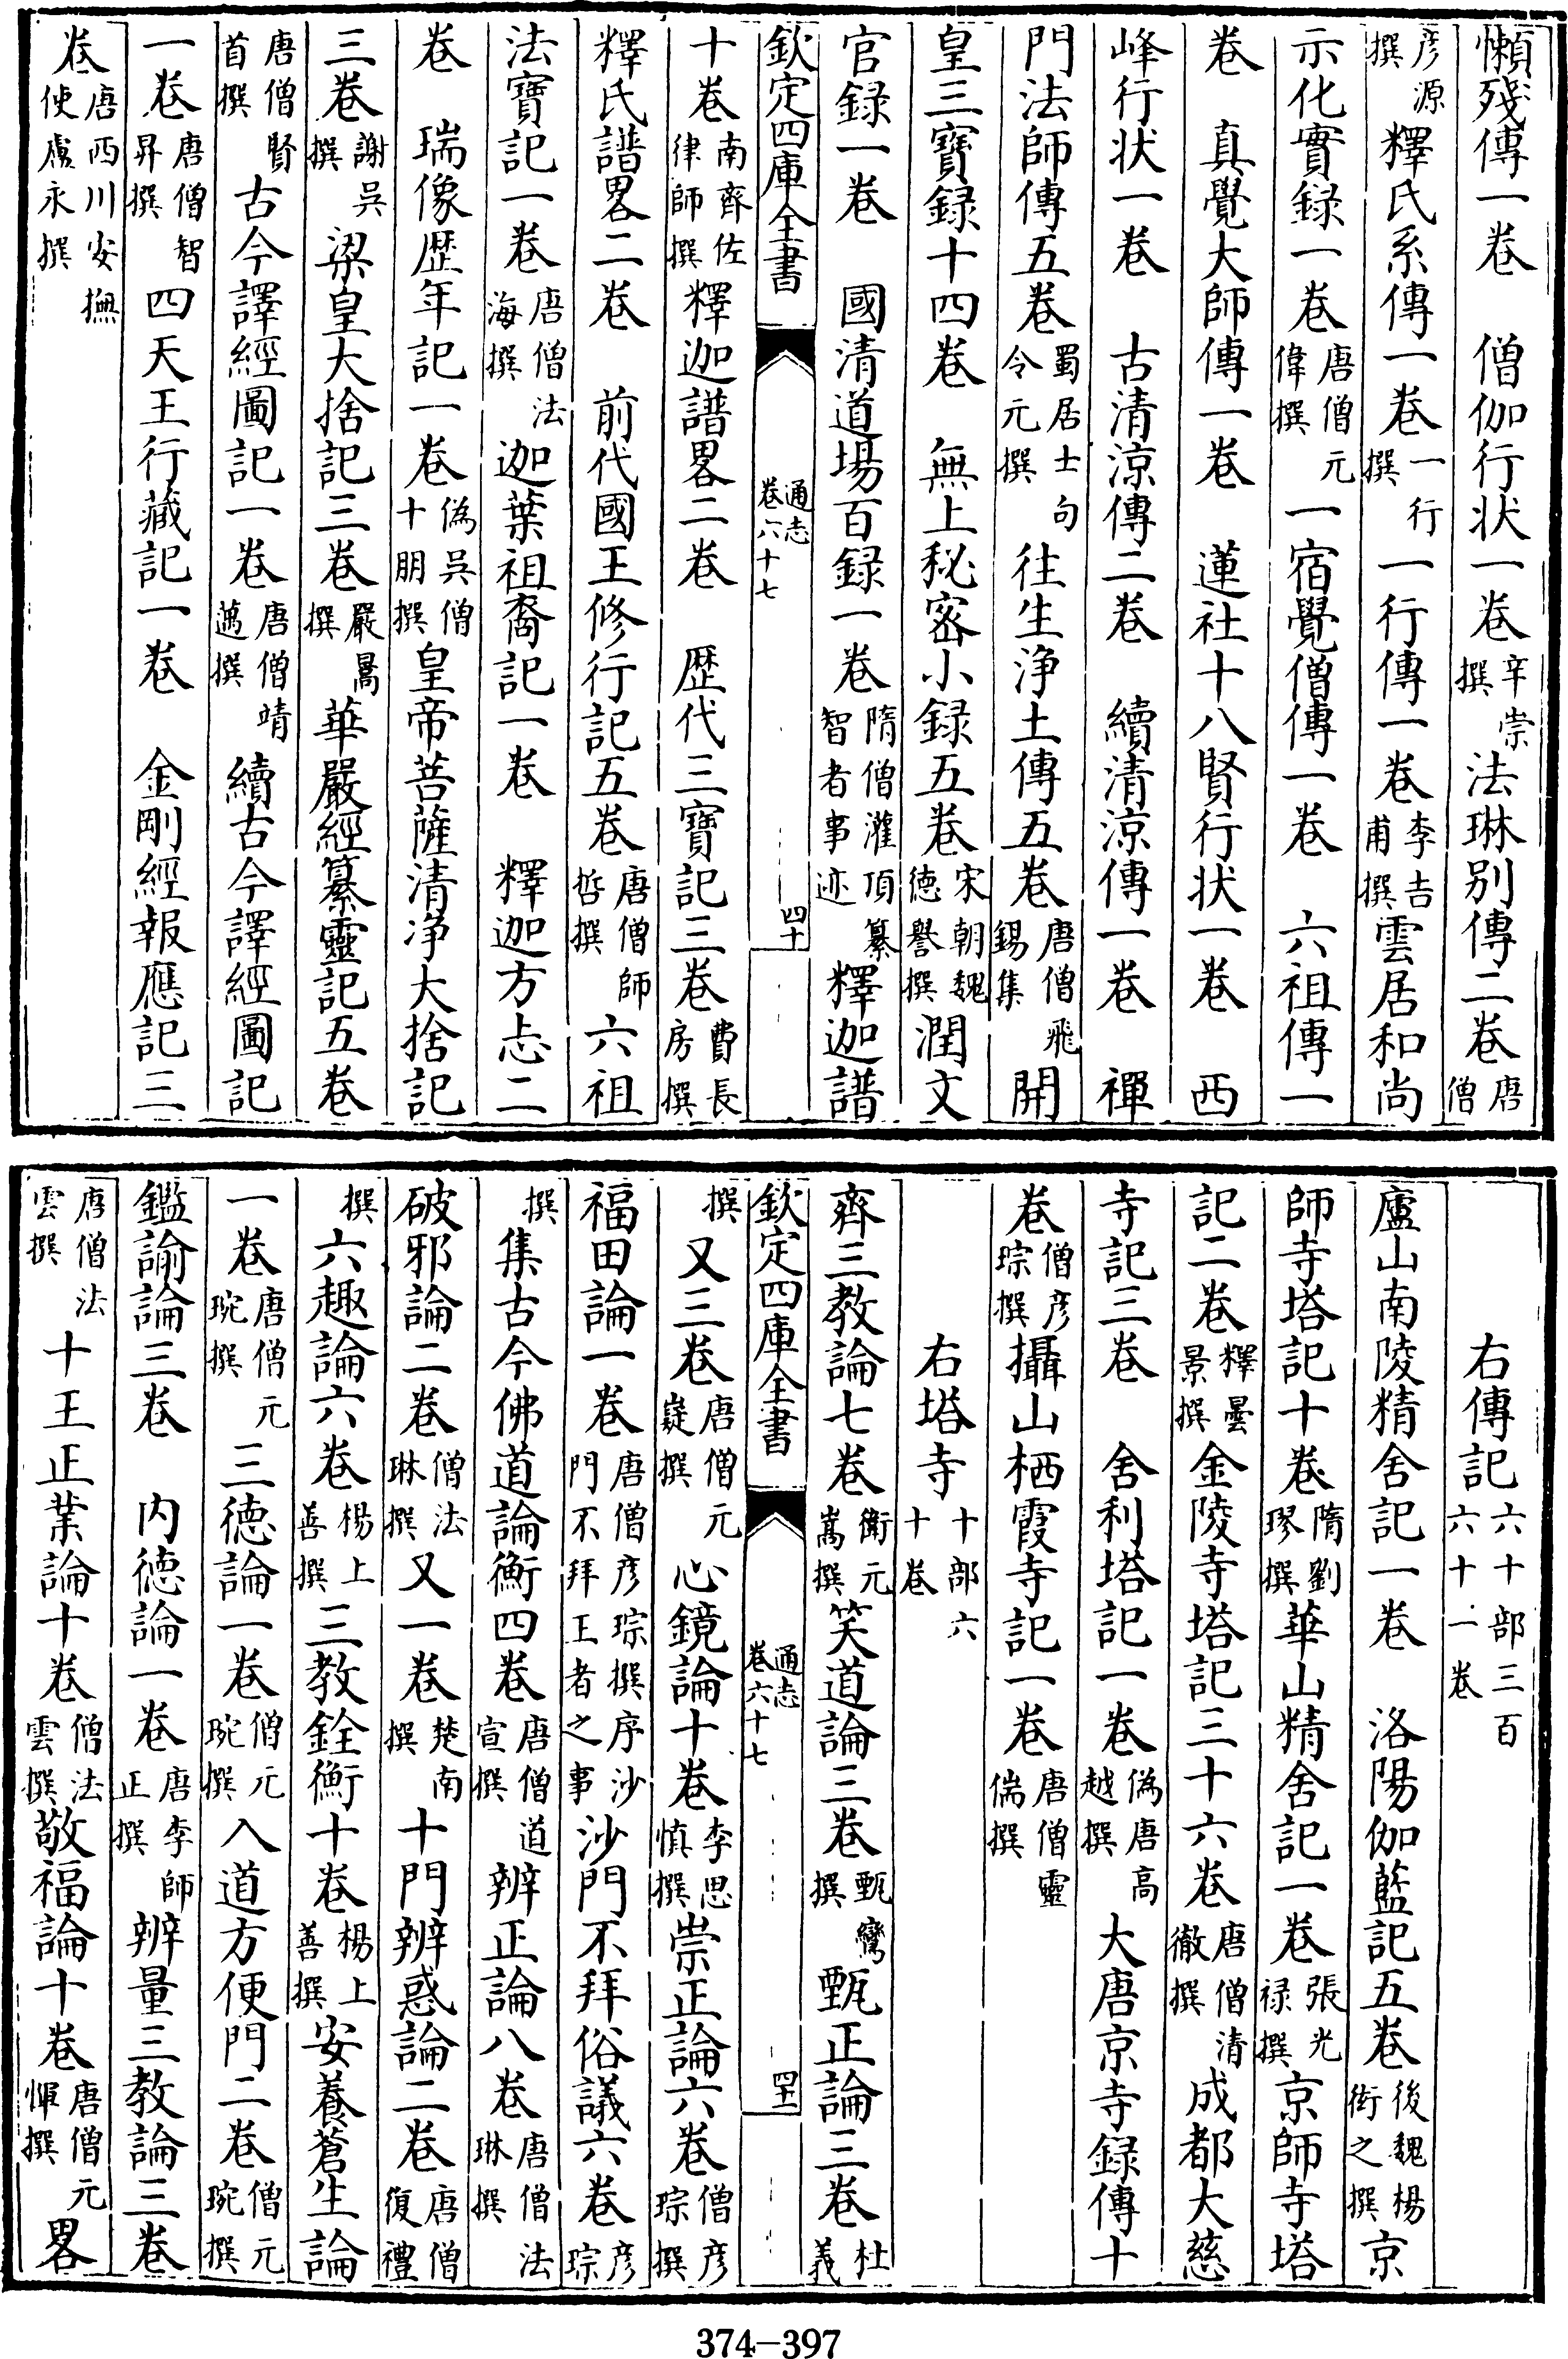 懶殘傳一卷　僧伽行狀一卷辛崇撰法琳別傳二卷唐僧
彦源撰釋氏系傳一卷一行撰一行傳一卷李吉甫撰雲居和尚
示化實録一卷唐僧元偉撰一宿覺僧傳一卷　六祖傳一
卷　真覺大師傳一卷　蓮社十八賢行狀一卷　西
峰行狀一卷　古清涼傳二卷　續清涼傳一卷　禪
門法師傳五卷蜀居士句令元撰往生浄土傳五卷唐僧飛錫集開
皇三寶録十四卷　無上秘密小録五卷宋朝魏德譽撰潤文
官録一卷　國清道場百録一卷隋僧灌頂纂智者事迹釋迦譜
欽定四庫全書　通志卷六十七　四十
十卷南齊佐律師撰釋迦譜畧二卷　歴代三寶記三卷費長房撰
釋氏譜畧二卷　前代國王修行記五卷唐僧師哲撰六祖
法寶記一卷唐僧法海撰迦葉祖裔記一卷　釋迦方志二
卷　瑞像歴年記一卷偽吳僧十朋撰皇帝菩薩清浄大捨記
三卷謝吳撰梁皇大捨記三卷嚴暠撰華嚴經纂靈記五卷
唐僧賢首撰古今譯經圖記一卷唐僧靖邁撰續古今譯經圖記
一卷唐僧智昇撰四天王行藏記一卷　金剛經報應記三
卷唐西川安撫使盧永撰
右傳記六十部三百六十一卷
廬山南陵精舍記一卷　洛陽伽藍記五卷後魏楊衒之撰京
師寺塔記十卷隋劉璆撰華山精舍記一卷張光禄撰京師寺塔
記二卷釋曇景撰金陵寺塔記三十六卷唐僧清徹撰成都大慈
寺記三卷　舍利塔記一卷偽唐高越撰大唐京寺録傳十
卷僧彦琮撰攝山栖霞寺記一卷唐僧靈偳撰
右塔寺十部六十卷
齊三教論七卷衛元嵩撰笑道論三卷甄鸞撰甄正論三卷杜義
欽定四庫全書　通志卷六十七　四十一
撰又三卷唐僧元嶷撰心鏡論十卷李思慎撰崇正論六卷僧彦琮撰
福田論一卷唐僧彦琮撰序沙門不拜王者之事沙門不拜俗議六卷彦琮
撰集古今佛道論衡四卷唐僧道宣撰辨正論八卷唐僧法琳撰
破邪論二卷僧法琳撰又一卷楚南撰十門辨惑論二卷唐僧復禮
撰六趣論六卷楊上善撰三教銓衡十卷楊上善撰安養蒼生論
一卷唐僧元琬撰三德論一卷僧元琬撰入道方便門二卷僧元琬撰
鑑諭論三卷　内德論一卷唐李師正撰辨量三教論三卷
唐僧法雲撰十王正業論十卷僧法雲撰敬福論十卷唐僧元惲撰畧
374-397